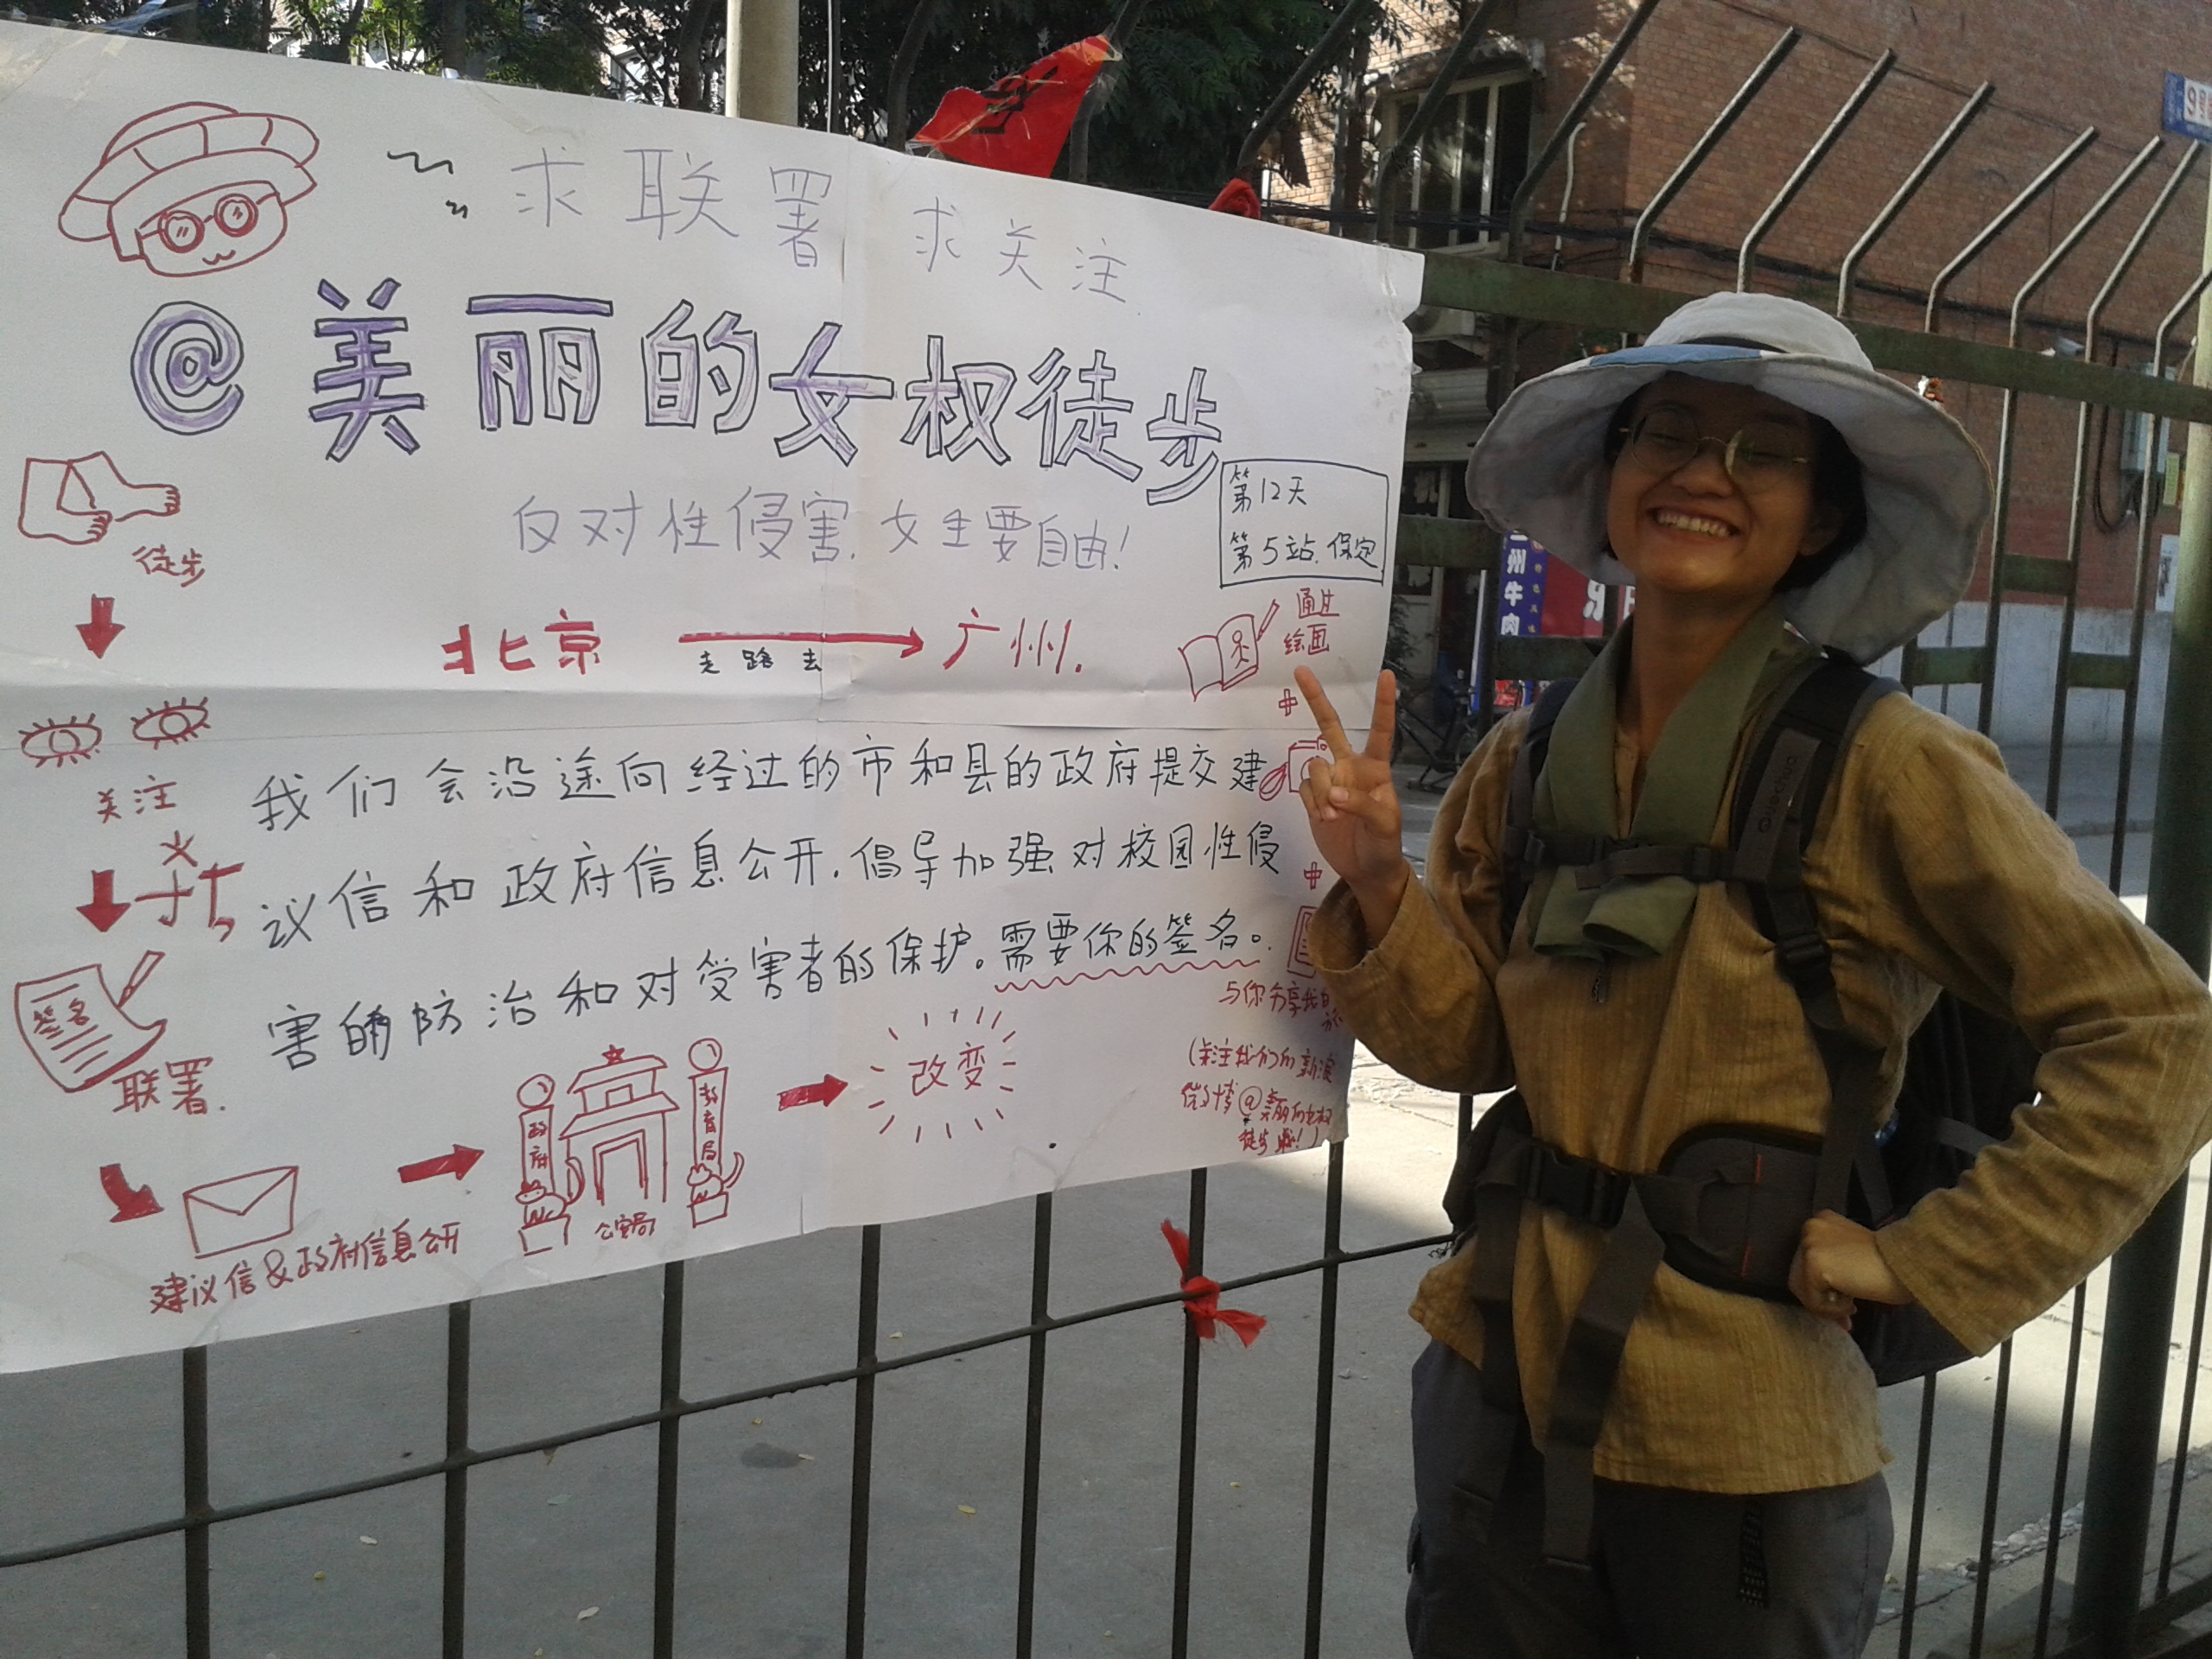 求联署 求关注
@美丽的女权徒步
反对性侵害，女生要自由！
第12天
第5站.保定
北京 走路去 广州.
徒步
关注
签名
联署.
通过
绘画
+
+
我们会沿途向经过的市和县的政府提交建
议信和政府信息公开.倡导加强对校园性侵
害的防治和对受害者的保护。需要你的签名。
与你分享我
(关注我们的新浪
微博@美丽的女权
徒步哦!)
政府
教育局
公安局
改变
建议信&政府信息公开
Queshua
州牛肉
9